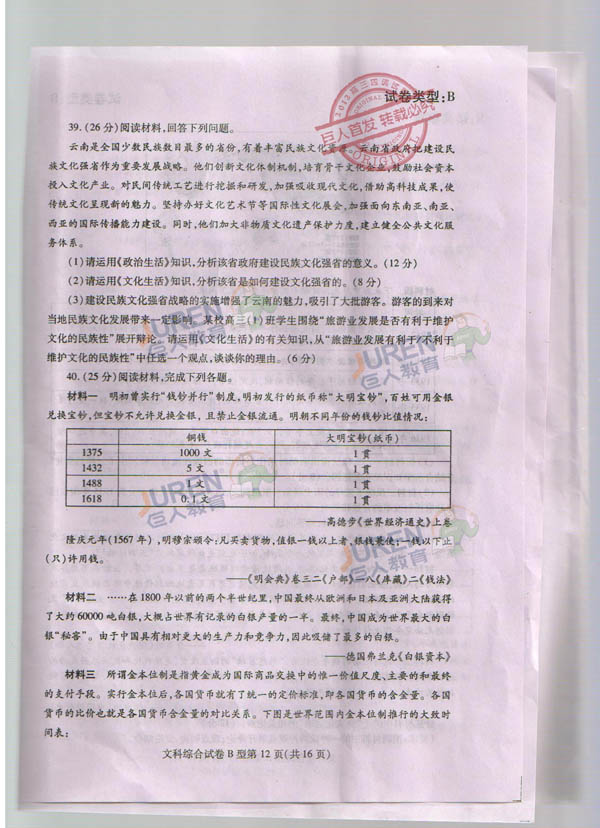 试卷类型:B
39.(26分)阅读材料,回答下列问题。
云南是全国少数民族数目最多的省份,有着丰富民族文化资源。云南省政府把建设民
族文化强省作为重要发展战略。他们创新文化体制机制,培育骨干文化企业,鼓励社会资本
投入文化产业。对民间传统工艺进行挖掘和研发,加强吸收现代文化,借助高科技成果,使
传统文化呈现新的魅力。坚持办好文化艺术节等国际性文化展会,加强面向东南亚、南亚、
西亚的国际传播能力建设。同时,他们加大非物质文化遗产保护力度,建立健全公共文化服
务体系。
(1)请运用《政治生活》知识,分析该省政府建设民族文化强省的意义。(12分)
(2)请运用《文化生活》知识,分析该省是如何建设文化强省的。(8分)
(3)建设民族文化强省战略的实施增强了云南的魅力,吸引了大批游客。游客的到来对
当地民族文化发展带来一定影响。某校高三(1)班学生围绕“旅游业发展是否有利于维护
文化的民族性”展开辩论。请运用《文化生活》的有关知识,从“旅游业发展有利于/不利于
维护文化的民族性”中任选一个观点,谈谈你的理由。(6分)
40.(25分)阅读材料,完成下列各题。
材料一 明初曾实行“钱钞并行”制度,明初发行的纸币称“大明宝钞”,百姓可用金银
兑换宝钞,但宝钞不允许兑换金银,且禁止金银流通。明朝不同年份的钱钞比值情况:
铜钱 大明宝钞(纸币)
1375 1000文 1贯
1432 5文 1贯
1488 1文 1贯
1618 0.1文 1贯
——高德步《世界经济通史》上卷
隆庆元年(1567年),明穆宗颁令:凡买卖货物,值银一钱以上者,银钱兼使;一钱以下止
(只)许用钱。
——《明会典》卷三二《户部》一八《库藏》二《钱法》
材料二 ……在1800年以前的两个半世纪里,中国最终从欧洲和日本及亚洲大陆获得
了大约60000吨白银,大概占世界有记录的白银产量的一半。最终,中国成为世界最大的白
银“秘窖”。由于中国具有相对更大的生产力和竞争力,因此吸储了最多的白银。
——德国弗兰克《白银资本》
材料三 所谓金本位制是指黄金成为国际商品交换中的惟一价值尺度、主要的和最终
的支付手段。实行金本位后,各国货币就有了统一的定价标准,即各国货币的含金量。各国
货币的比价也就是各国货币含金量的对比关系。下图是世界范围内金本位制推行的大致时
间表:
文科综合试卷B型第12页(共16页)
巨人首发 转载必究
ORIGINAL
JUREN
巨人教育
JUREN
巨人教育
JUREN
巨人教育